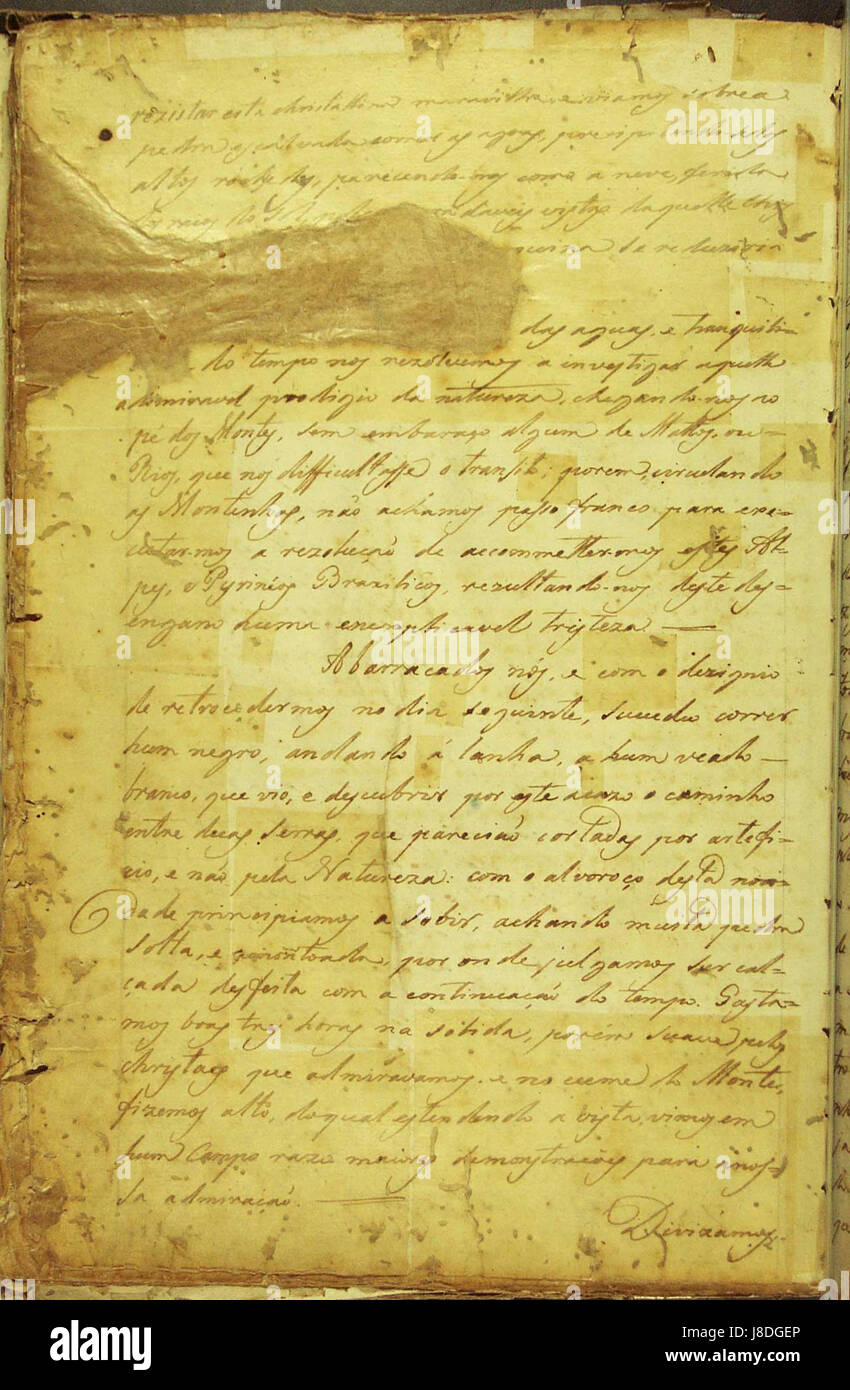 rezistar esta christallina maravilha e viamos sobre a
pedra escalvada correr as agoas, precipitando-se dos
altos rochedos, parecendo-nos como a neve, ferida
dos raios do Sol, vistas daquelle
se reduziria
das aguas, e tranquili-
do tempo nos rezolvemos a investigar aquelle
admiravel prodigio da natureza, chegando-nos ao
pé dos Montes, sem embaraço algum de Mattos, ou
Rios, que nos difficultasse o tranzito; porem, circulando
as Montanhas, não achamos passo franco para exe-
cutarmos a rezolução de accommettermos estes Al-
pes, e Pyrinéos Brazilicos, rezultando-nos deste des-
engano huma inexplicavel tristeza.
Abarracados nós, e com o dezignio
de retrocedermos no dia seguinte, sucedeo correr
hum negro, andando á lenha, a hum veado
branco, que vio, e descubrir por este acazo o caminho
entre duas serras, que pareciaõ cortadas por artefi-
cio, e naõ pela Natureza: com o alvoroço desta novi-
dade principiamos a subir, achando muita pedra
solta, e amontoada, por onde julgamos ser cal-
çada desfeita com a continuaçaõ do tempo. Gasta-
mos boas tres horas na sobida, porém suave pelos
christaes que admiravamos, e no cume do Monte,
fizemos alto, do qual estendendo a vista, vimos em
hum Campo razo maiores demonstraçoẽs para a nos-
sa admiraçaõ.
Divizamos
alamy
a
Image ID: J8DGEP
www.alamy.com